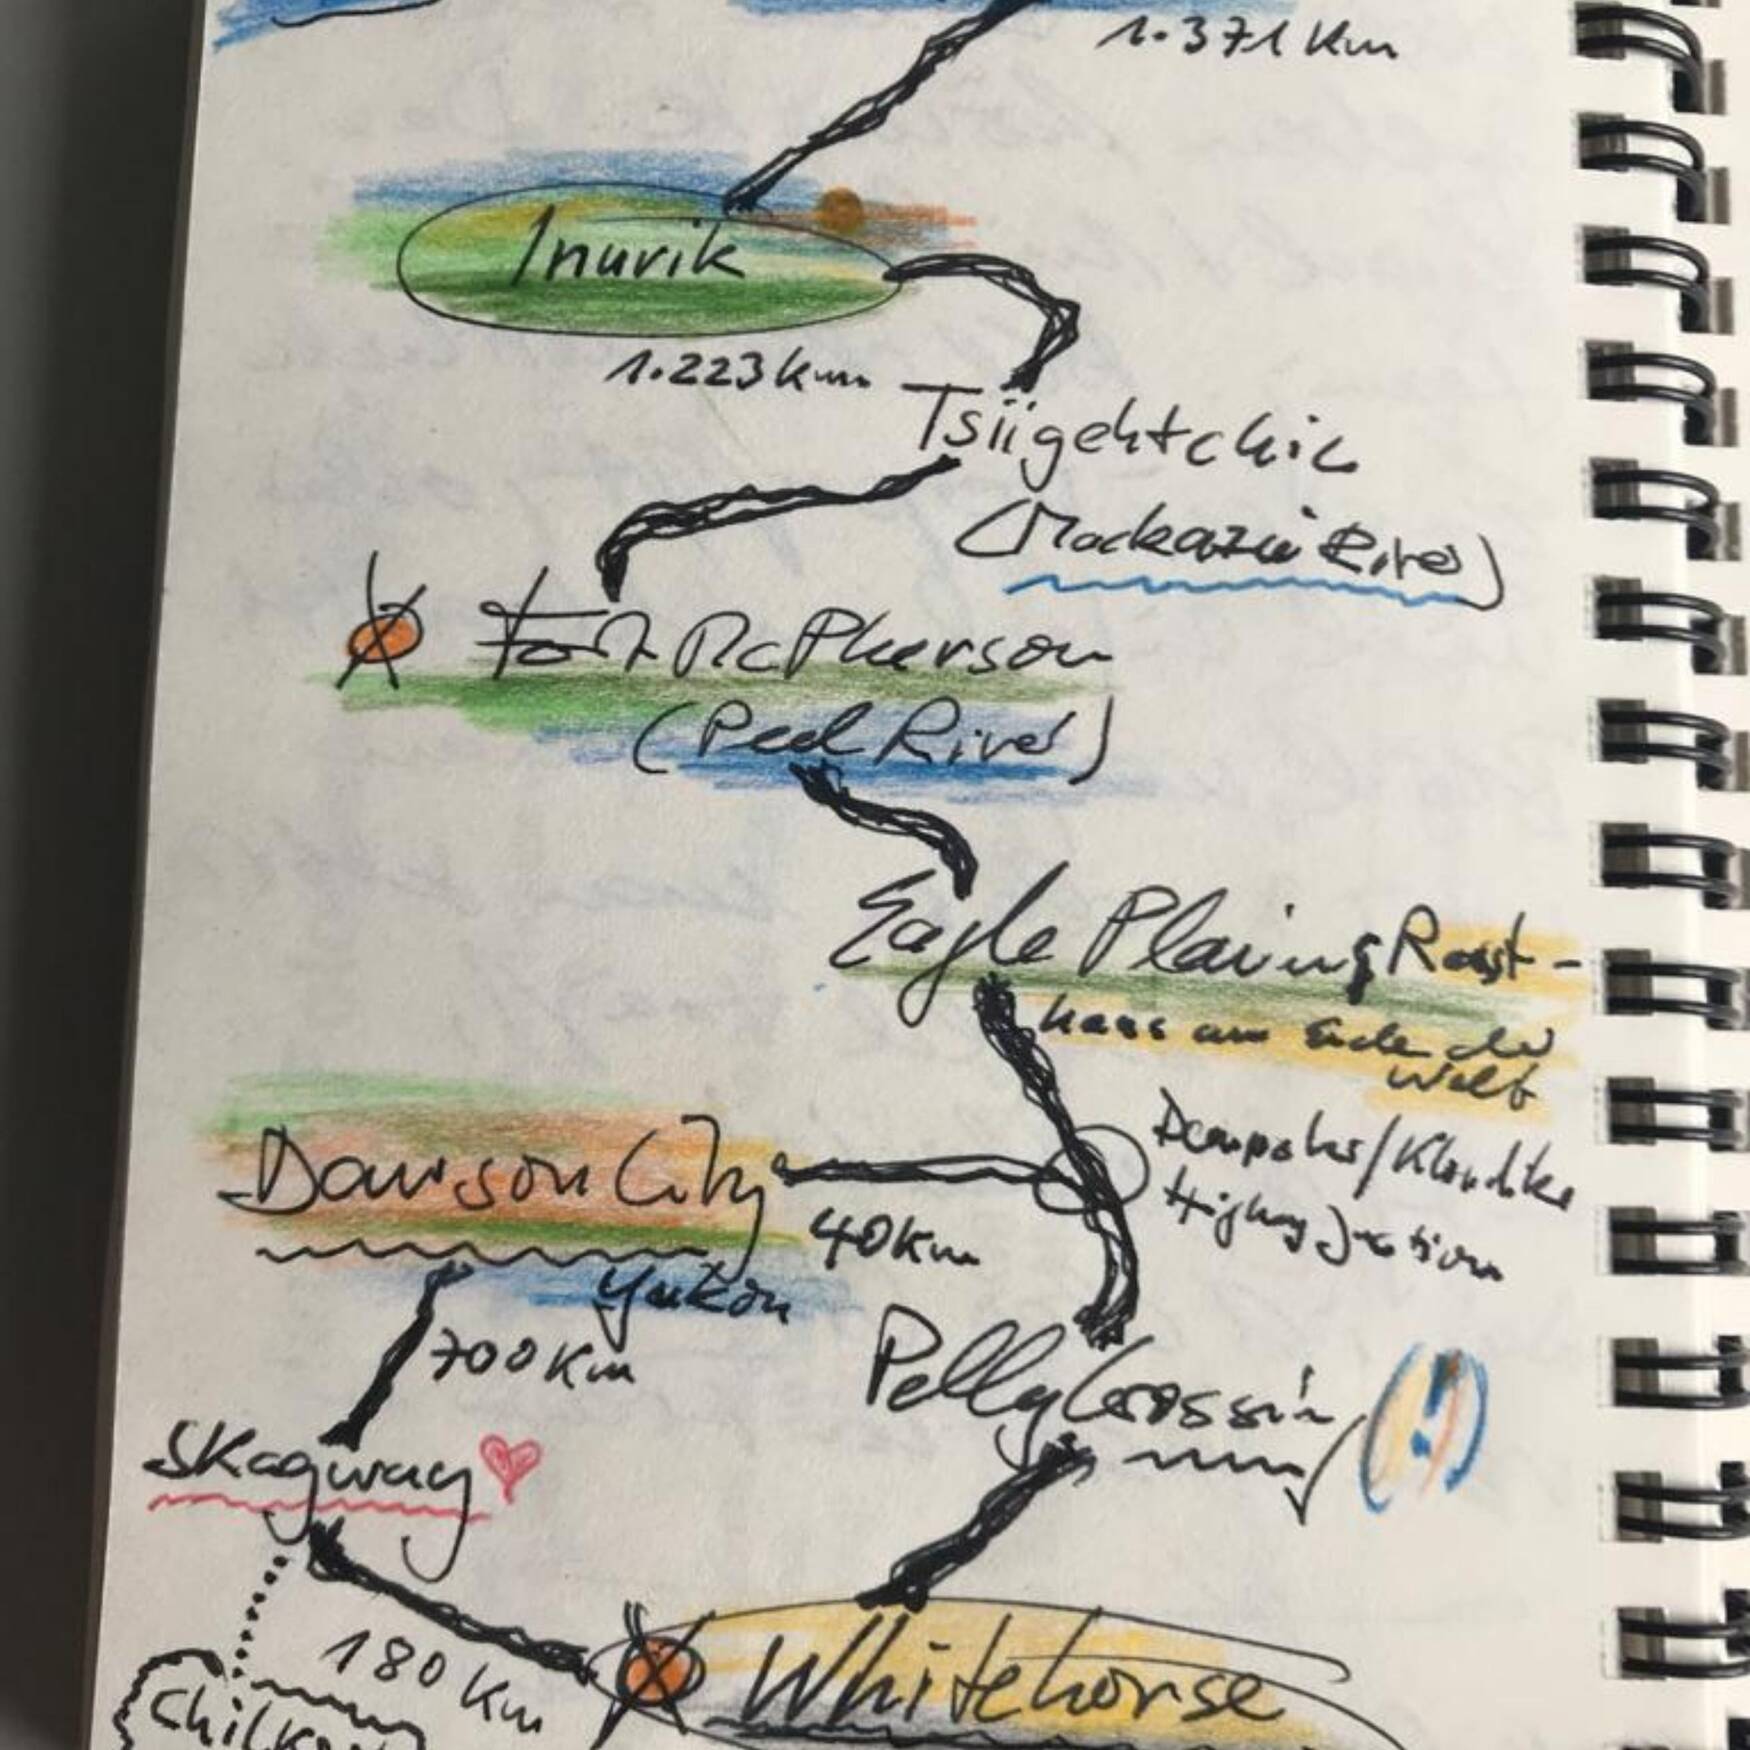 1.371 Km
Inuvik
1.223 km
Tsiigehtchic
(Mackazie River)
Fort McPherson
(Peel River)
Eagle Plains Rast-
haus am Ende der
Welt
Dempster/Klondike
Highway Junction
Dawson City
40 Km
Yukon
700 Km
Pelly Crossing (!)
Skagway
180 Km
Whitehorse